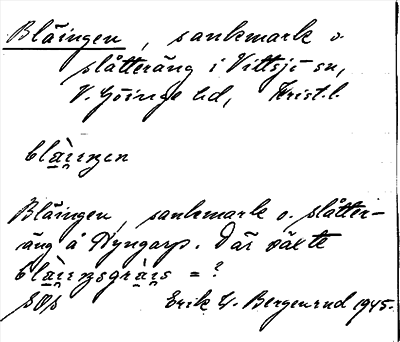 Bläingen, sankmark o.
slåtteräng i Vittsjö sn,
V. Göinge hd, Krist. l.
blä̀ɪŋen
Bläingen, sankmark o. slåtter-
äng å Nyngarp. Där växte
= ?
Erik W. Bergenrud 1945.